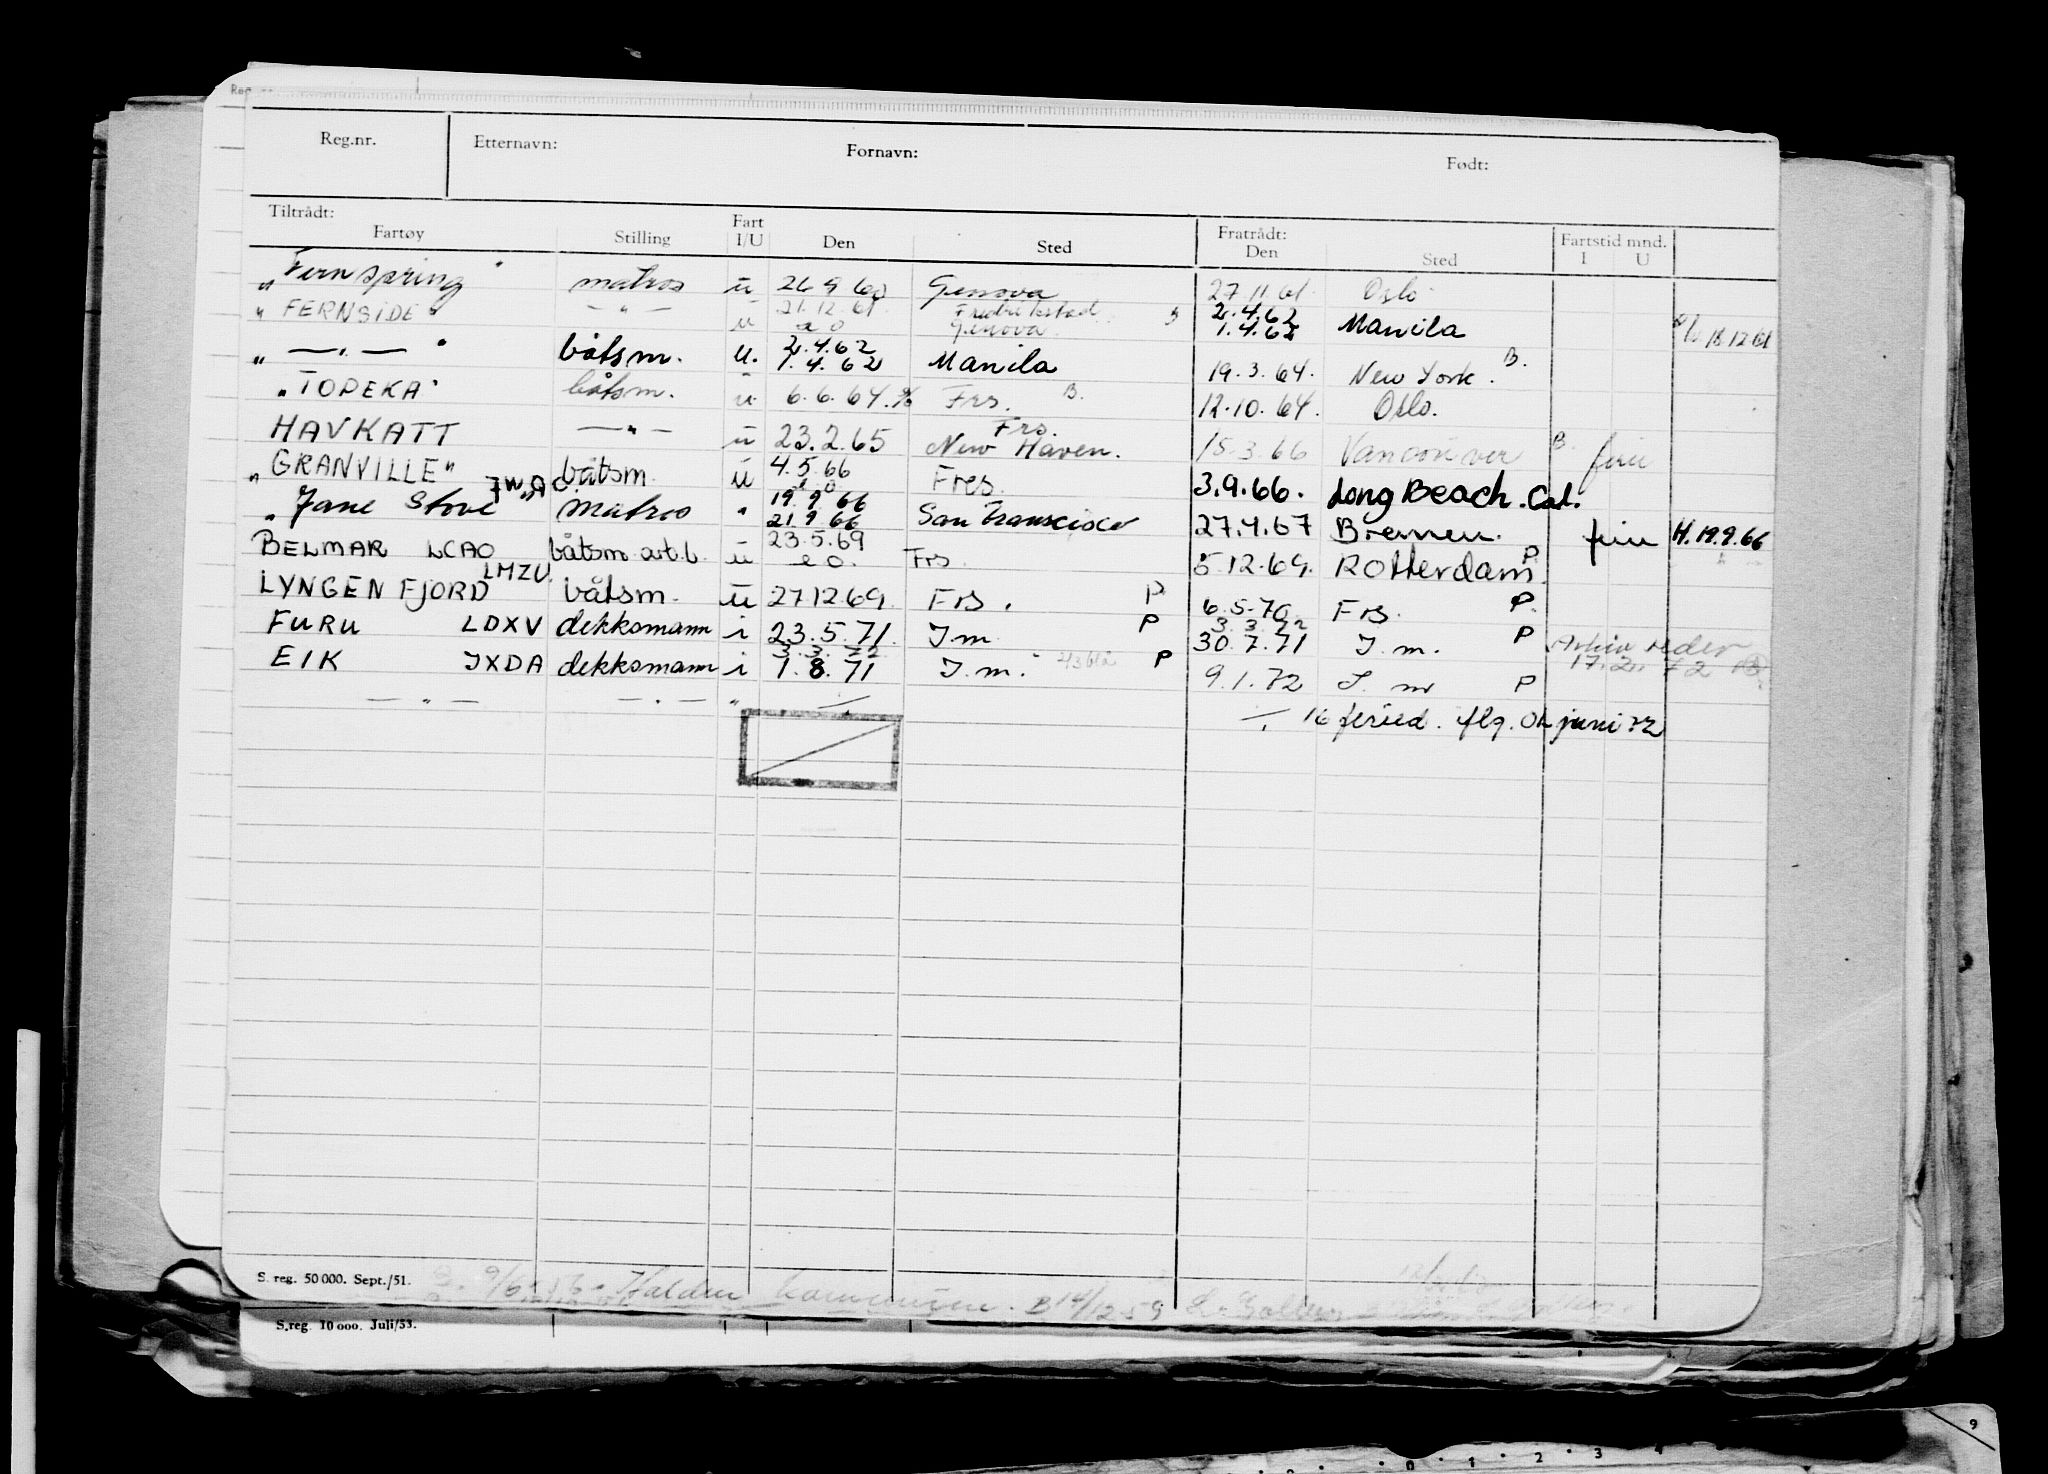 Reg.nr. Etternavn: Fornavn: Født:
Tiltrådt: Fratrådt: Fartstid mnd.
Fartøy Stilling Fart I/U Den Sted Den Sted I U
"Fernspring" matros u 26 9 60 Genova 27 11 61. Oslo
"FERNSIDE" — " — u 21.12.61. Fredrikstad. B 2.4.62 Manila 18 12 61
Genova 1.4.62
" — " — " båtsm. u. 2.4.62 Manila 19.3.64. New York. B.
1.4.62
"TOPEKA" båtsm. u. 6.6.64. Frs. B. 12.10.64. Oslo.
HAVKATT — " — u 23.2.65 Frs. New Haven. 15.3.66 Vancouver B.
"GRANVILLE" båtsm. u 4.5.66 Fres. 3.9.66. Long Beach. Cal.
"Jane Stove" matros " 19 9 66 San Francisco 27.4.67 Bremen. H. 19.9.66
21 9 66
BELMAR LCAO båtsm u 23.5.69 Frs. 5.12.69. Rotterdam. P
LYNGENFJORD LMZU båtsm. u 27.12.69. Frs. P 6.5.70 Frs. P.
FURU LDXV dekksmann i 23.5.71. I.m. P 30.7.71 I.m. P
3.3.72 3.3.72 17.2. 72
EIK JXDA dekksmann i 1.8.71 I.m. P 9.1.72 I. m P
— " — — " — "
16 juni 72
S. reg. 50 000. Sept./51.
9/6 Halden kommune. B 14/12-59
S.reg. 10 000. Juli/53.
9
0 1 2 3